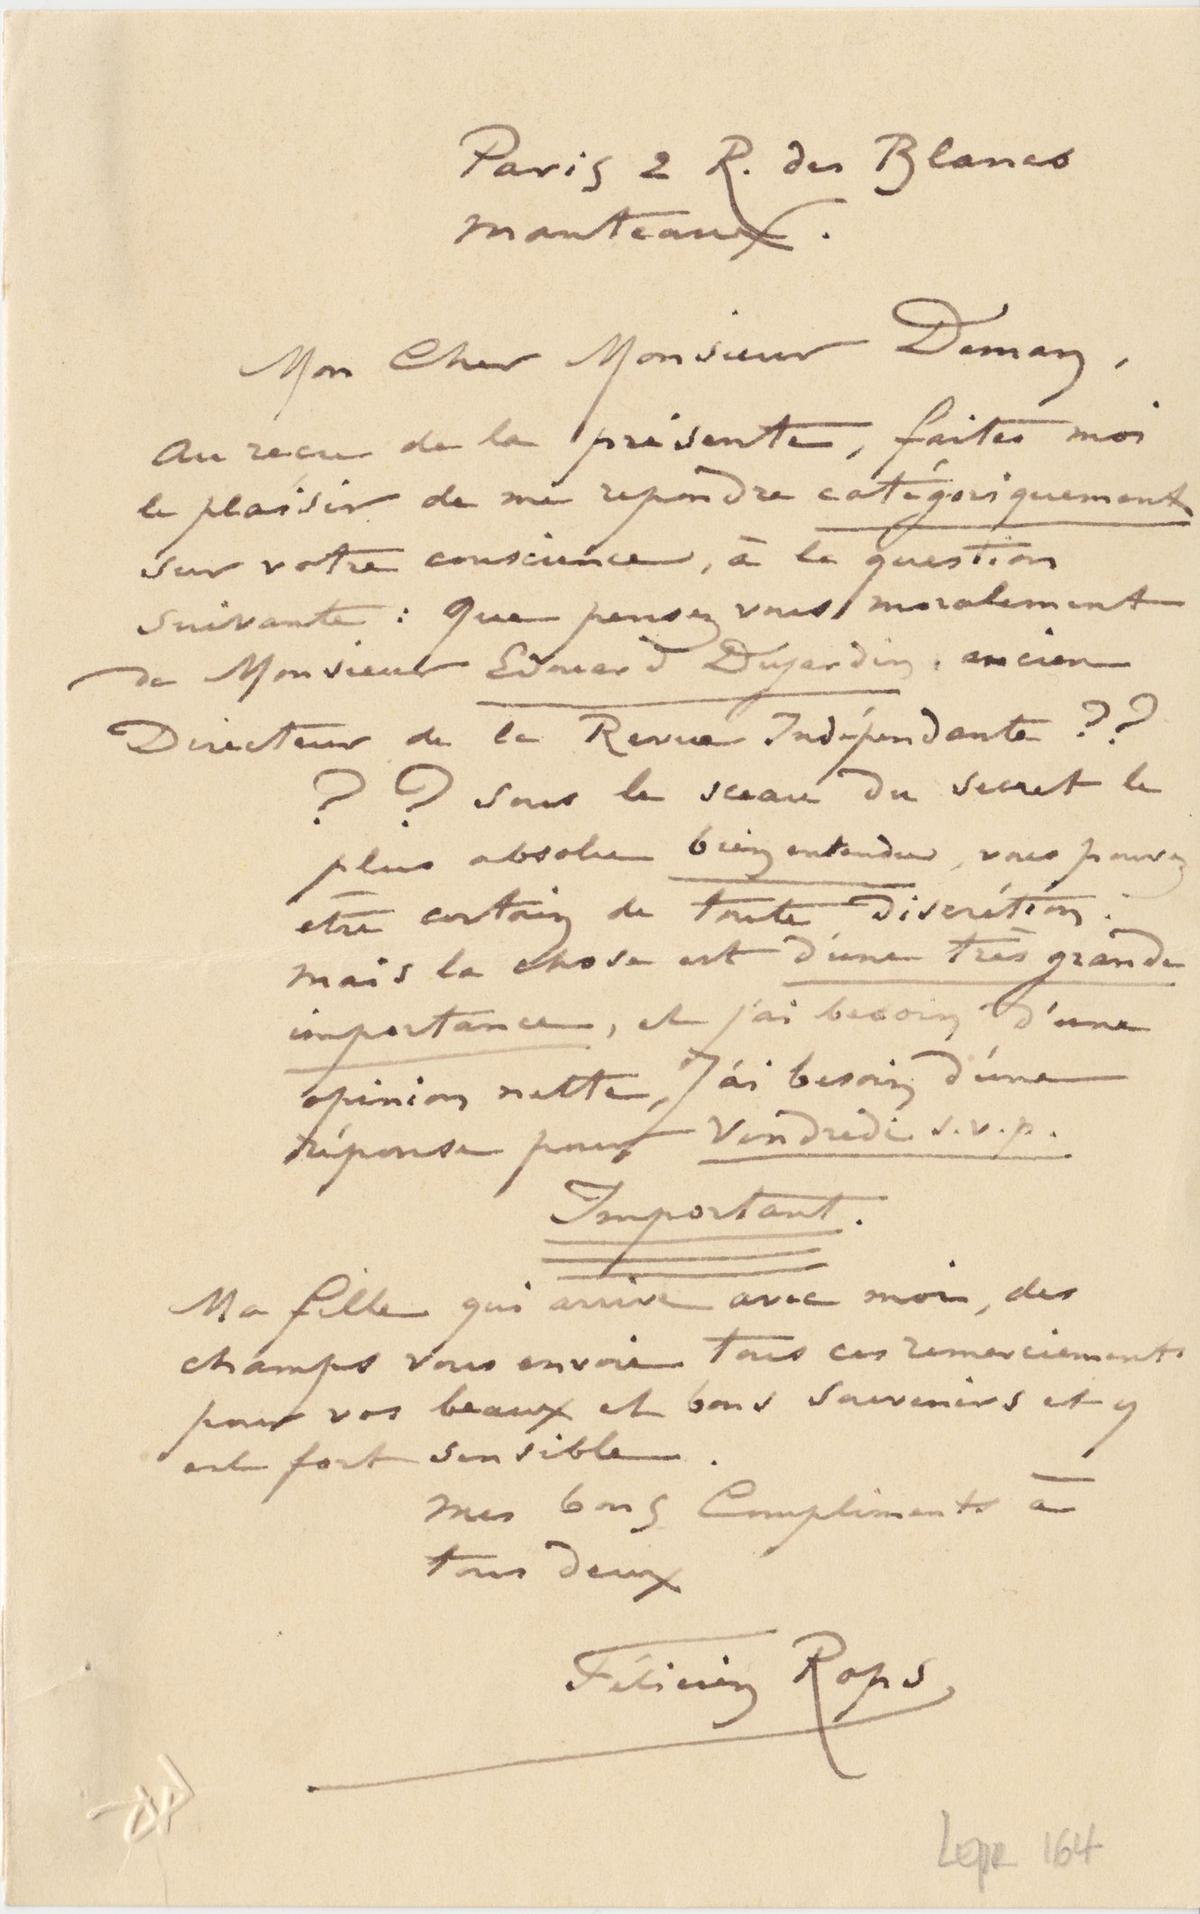 Paris 2 R. des Blancs
Manteaux.
Mon Cher Monsieur Deman,
Au reçu de la présente, faites moi
le plaisir de me repondre catégoriquement
sur votre conscience, à la question
suivante : Que pensez vous moralement
de Monsieur Edouard Dujardin, ancien
Directeur de la Revue Indépendante ??
? ? sous le sceau du secret le
plus absolu bien entendu, vous pouvez
être certain de toute discrétion.
mais la chose est d'une très grande
importance, et j'ai besoin d'une
opinion nette, J'ai besoin d'une
réponse pour Vendredi s.v.p.
Important.
Ma fille qui arrive avec moi, des
champs vous envoie tous ces remerciements
pour vos beaux et bons souvenirs et y
est fort sensible.
Mes bons Compliments à
tous deux
Félicien Rops
Lepr 164